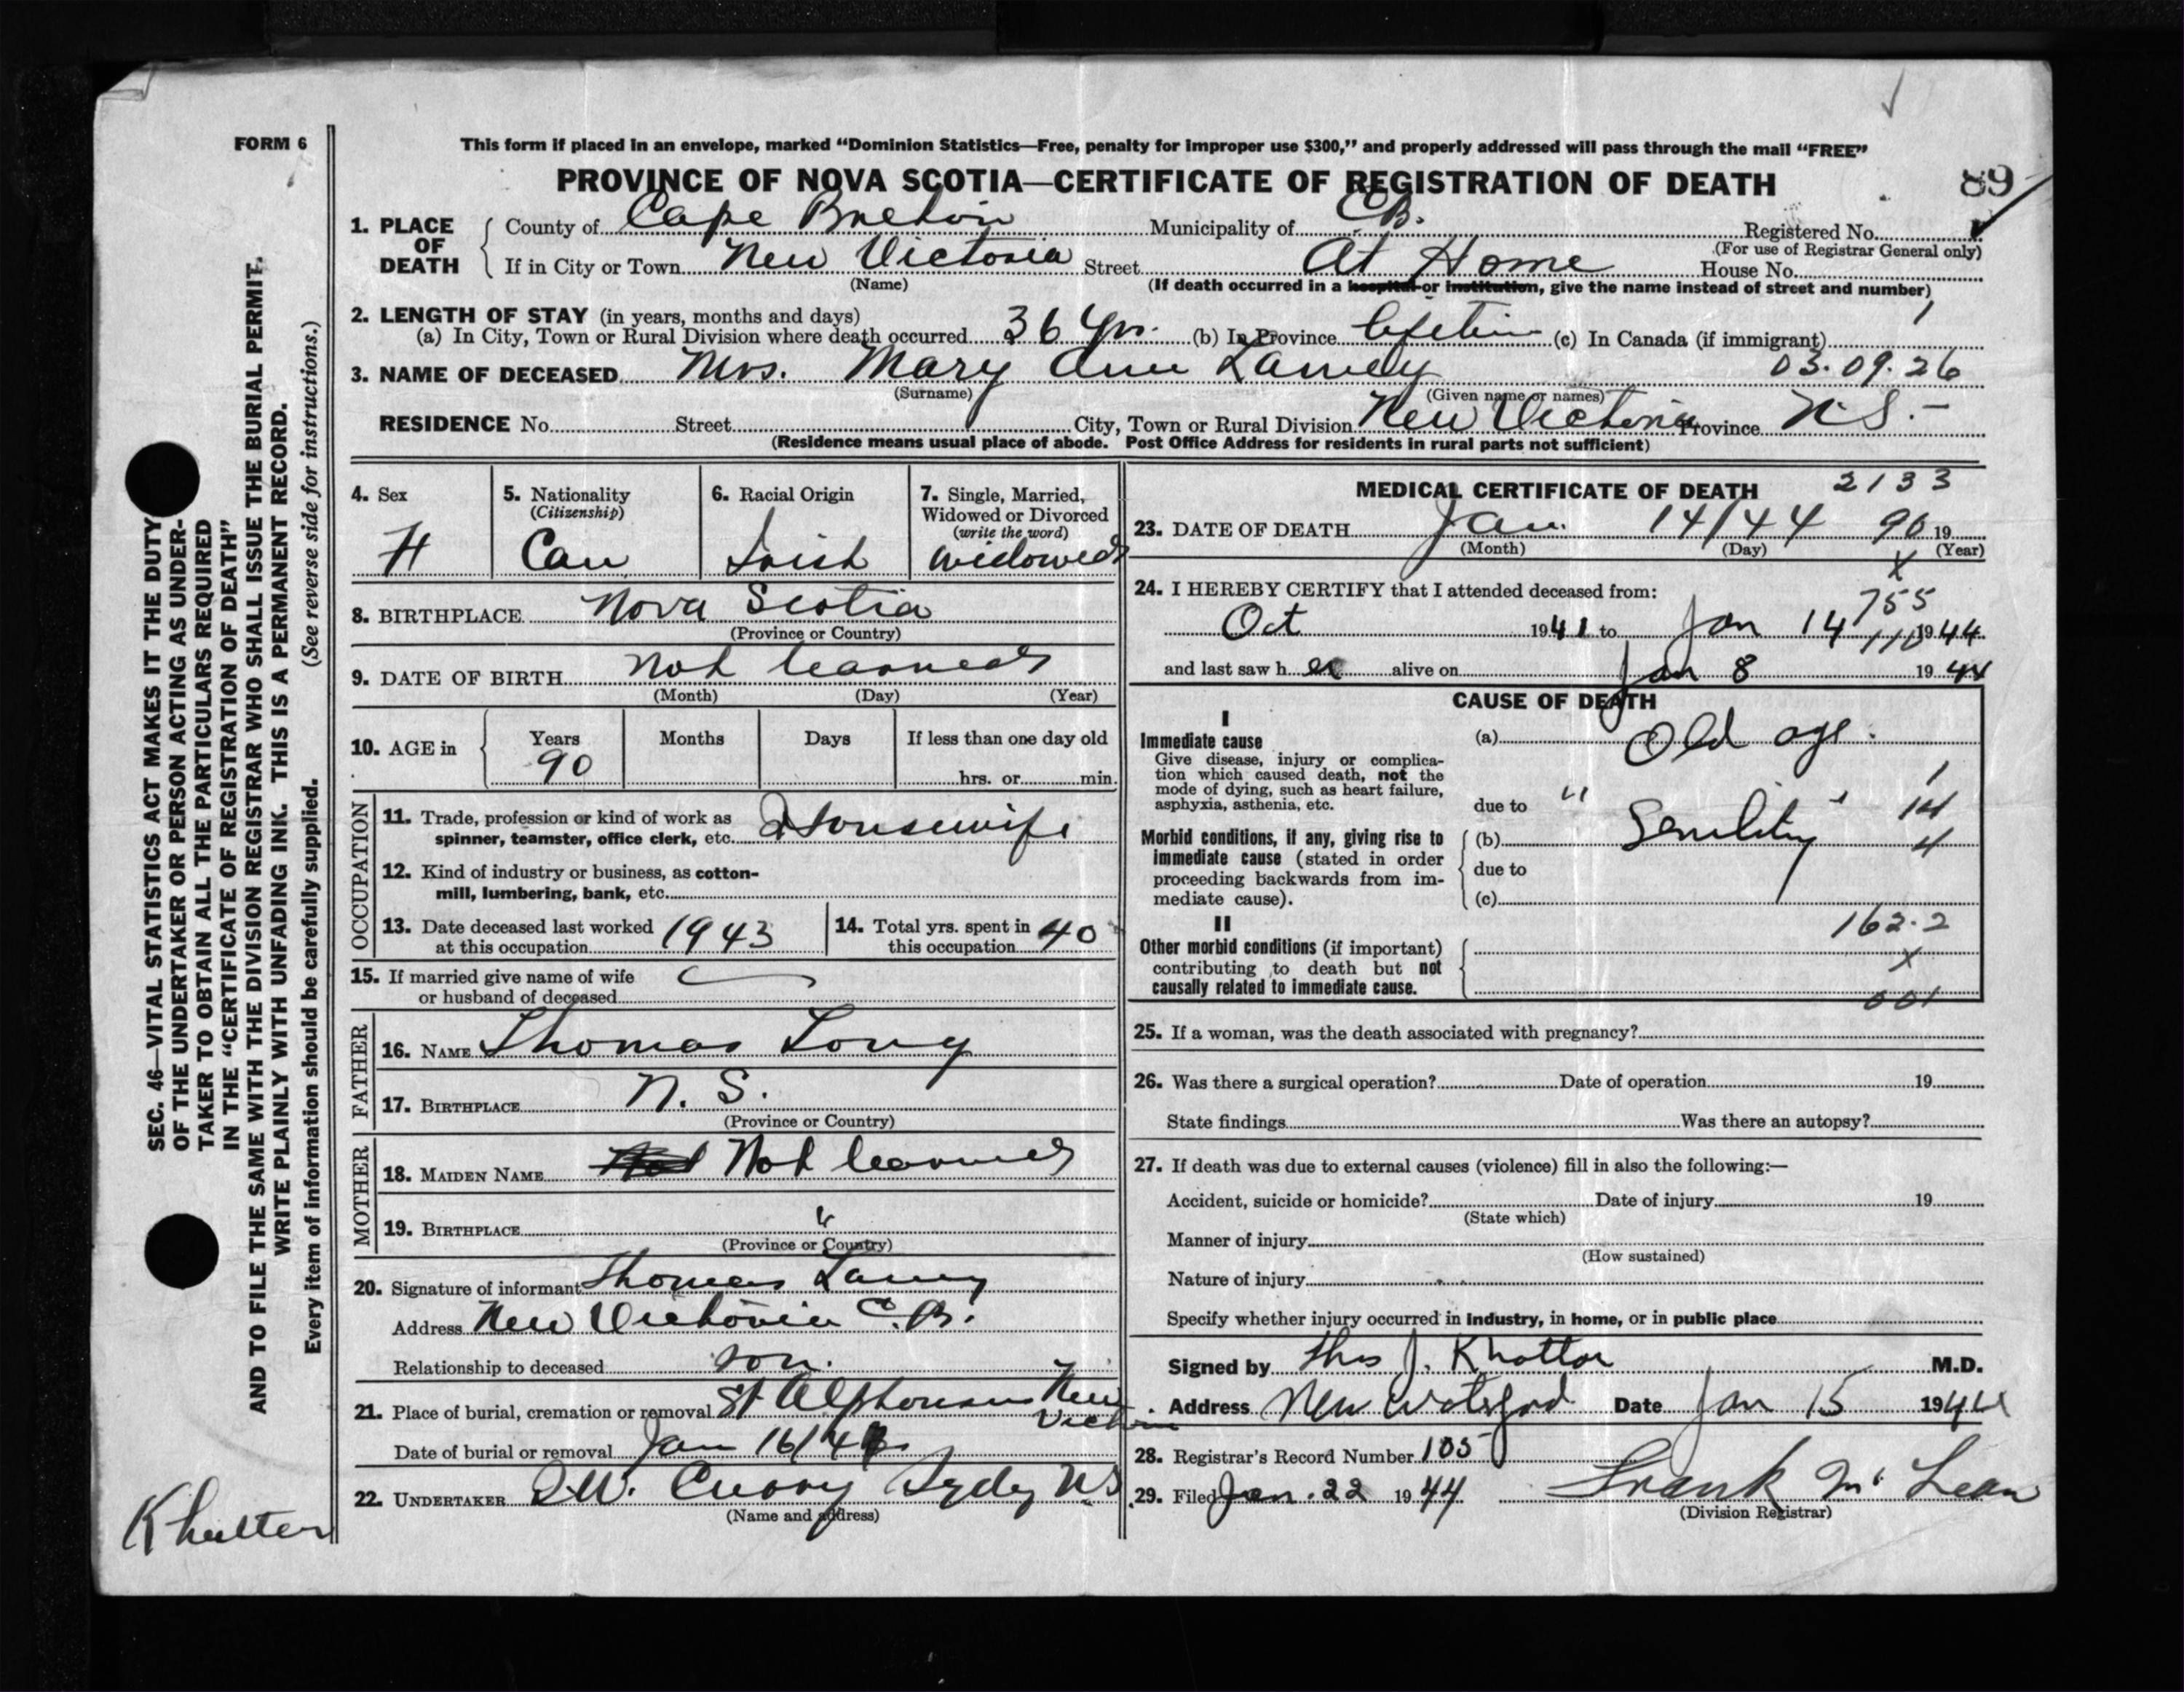 FORM 6
This form if placed in an envelope, marked “Dominion Statistics—Free, penalty for improper use $300,” and properly addressed will pass through the mail “FREE”
PROVINCE OF NOVA SCOTIA—CERTIFICATE OF REGISTRATION OF DEATH
89
1. PLACE OF DEATH
County of Cape Breton Municipality of C.B. Registered No.
(For use of Registrar General only)
If in City or Town New Victoria Street At Home House No.
(Name) (If death occurred in a hospital or institution, give the name instead of street and number)
2. LENGTH OF STAY (in years, months and days)
(a) In City, Town or Rural Division where death occurred 36 yrs. (b) In Province lifetime (c) In Canada (if immigrant)
3. NAME OF DECEASED Mrs. Mary Ann Lamey 03.09.26
(Surname) (Given name or names)
RESIDENCE No. Street City, Town or Rural Division New Victoria Province N.S.
(Residence means usual place of abode. Post Office Address for residents in rural parts not sufficient)
4. Sex
5. Nationality
(Citizenship)
Can
6. Racial Origin
Irish
7. Single, Married,
Widowed or Divorced
(write the word)
widowed
8. BIRTHPLACE Nova Scotia
(Province or Country)
9. DATE OF BIRTH Not learned
(Month) (Day) (Year)
10. AGE in
Years Months Days If less than one day old
90 hrs. or min.
OCCUPATION
11. Trade, profession or kind of work as
spinner, teamster, office clerk, etc. Housewife
12. Kind of industry or business, as cotton-
mill, lumbering, bank, etc.
13. Date deceased last worked
at this occupation 1943
14. Total yrs. spent in
this occupation 40
15. If married give name of wife
or husband of deceased
FATHER
16. NAME Thomas Long
17. BIRTHPLACE N. S.
(Province or Country)
MOTHER
18. MAIDEN NAME Not Not learned
19. BIRTHPLACE "
(Province or Country)
20. Signature of informant Thomas Lamey
Address New Victoria C.B.
Relationship to deceased son.
21. Place of burial, cremation or removal St Alphonsus New
Victoria
Date of burial or removal Jan 16/44
22. UNDERTAKER Curry Sydney N.S
(Name and address)
MEDICAL CERTIFICATE OF DEATH 2133
23. DATE OF DEATH Jan. 14/44 90 19
(Month) (Day) (Year)
X
24. I HEREBY CERTIFY that I attended deceased from:
755
Oct 1941 to Jan 14 110 1944
and last saw her alive on Jan 8 1944
CAUSE OF DEATH
I
Immediate cause
Give disease, injury or complica-
tion which caused death, not the
mode of dying, such as heart failure,
asphyxia, asthenia, etc.
(a) Old age.
1
due to " Senility " 14
Morbid conditions, if any, giving rise to
immediate cause (stated in order
proceeding backwards from im-
mediate cause).
(b) 4
due to
(c)
162.2
II
Other morbid conditions (if important)
contributing to death but not
causally related to immediate cause.
X
001
25. If a woman, was the death associated with pregnancy?
26. Was there a surgical operation? Date of operation 19
State findings Was there an autopsy?
27. If death was due to external causes (violence) fill in also the following:—
Accident, suicide or homicide? Date of injury 19
(State which)
Manner of injury
(How sustained)
Nature of injury
Specify whether injury occurred in industry, in home, or in public place
Signed by Thos J. Khattar M.D.
Address New Waterford Date Jan 15 1944
28. Registrar's Record Number 105
29. Filed Jan. 22 1944 Frank McLean
(Division Registrar)
SEC. 46—VITAL STATISTICS ACT MAKES IT THE DUTY
OF THE UNDERTAKER OR PERSON ACTING AS UNDER-
TAKER TO OBTAIN ALL THE PARTICULARS REQUIRED
IN THE “CERTIFICATE OF REGISTRATION OF DEATH”
AND TO FILE THE SAME WITH THE DIVISION REGISTRAR WHO SHALL ISSUE THE BURIAL PERMIT.
WRITE PLAINLY WITH UNFADING INK. THIS IS A PERMANENT RECORD.
Every item of information should be carefully supplied. (See reverse side for instructions.)